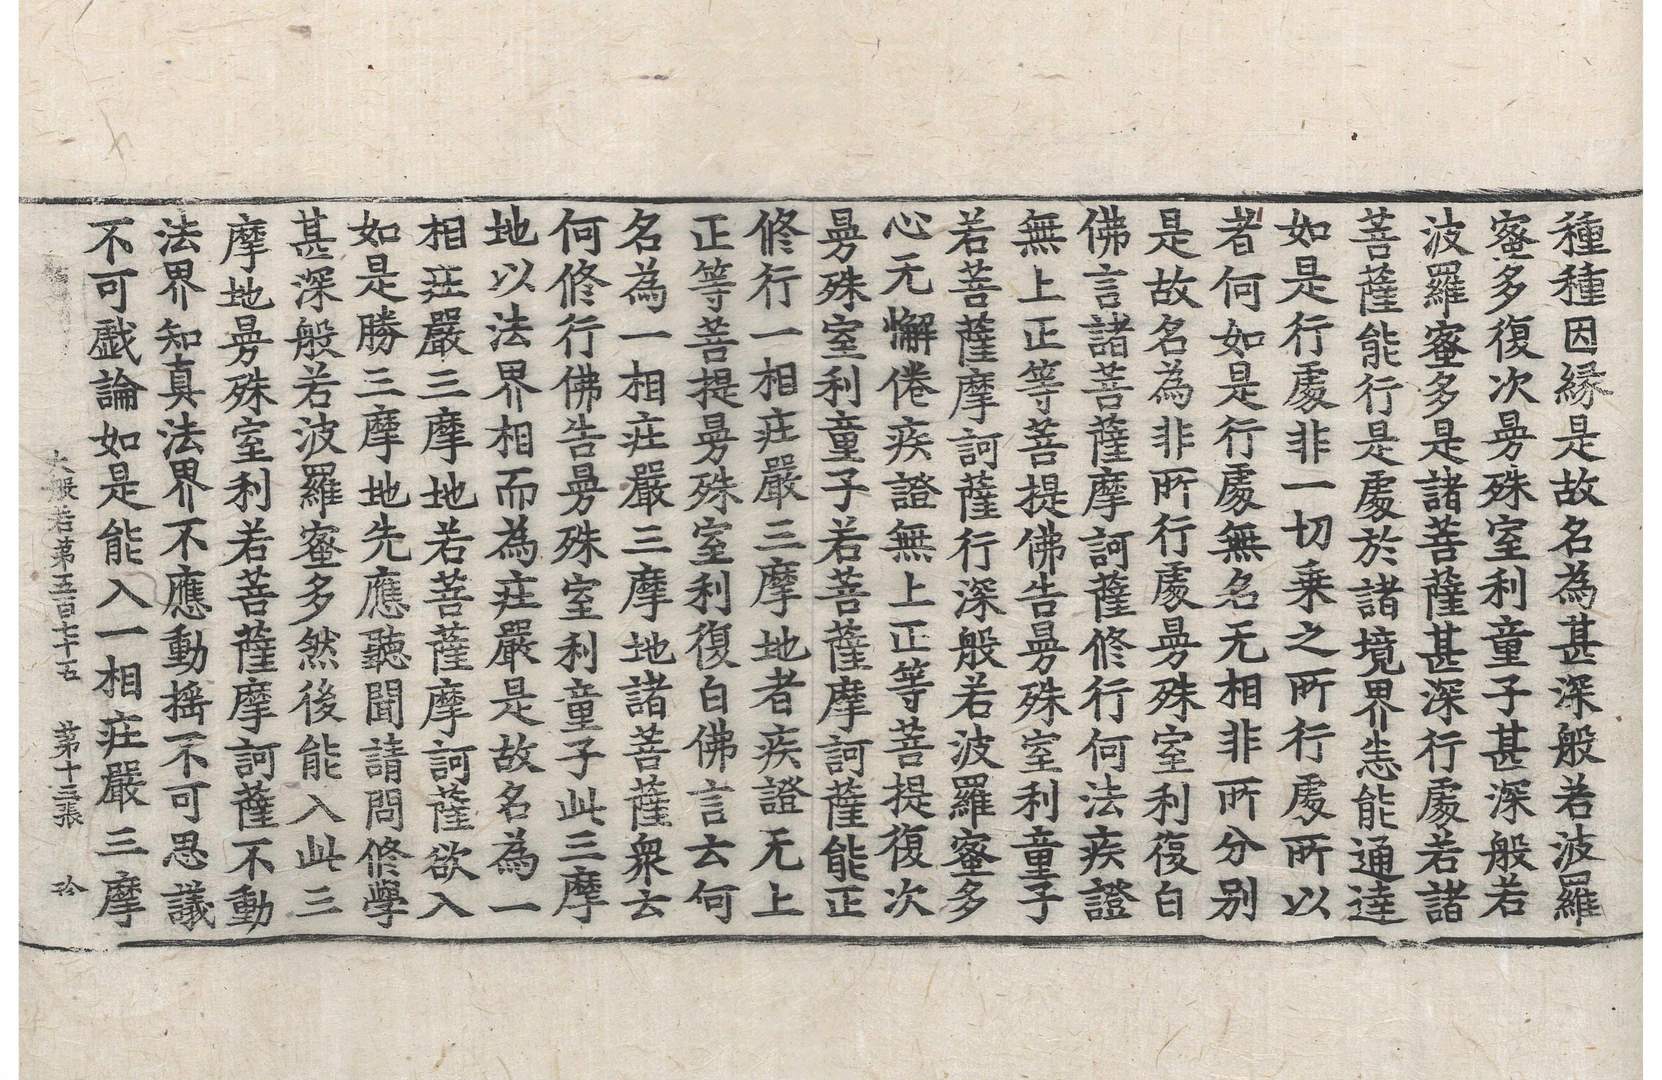 種種因緣是故名為甚深般若波羅
蜜多復次曼殊室利童子甚深般若
波羅蜜多是諸菩薩甚深行處若諸
菩薩能行是處於諸境界悉能通達
如是行處非一切乗之所行處所以
者何如是行處無名无相非所分别
是故名為非所行處曼殊室利復白
佛言諸菩薩摩訶薩修行何法疾證
無上正等菩提佛告曼殊室利童子
若菩薩摩訶薩行深般若波羅蜜多
心无懈倦疾證無上正等菩提復次
曼殊室利童子若菩薩摩訶薩能正
修行一相莊嚴三摩地者疾證无上
正等菩提曼殊室利復白佛言云何
名為一相莊嚴三摩地諸菩薩衆云
何修行佛告曼殊室利童子此三摩
地以法界相而為莊嚴是故名為一
相莊嚴三摩地若菩薩摩訶薩欲入
如是勝三摩地先應聽聞請問修學
甚深般若波羅蜜多然後能入此三
摩地曼殊室利若菩薩摩訶薩不動
法界知真法界不應動搖不可思議
不可戲論如是能入一相莊嚴三摩
大般若第五百七十五 第十三張 珎